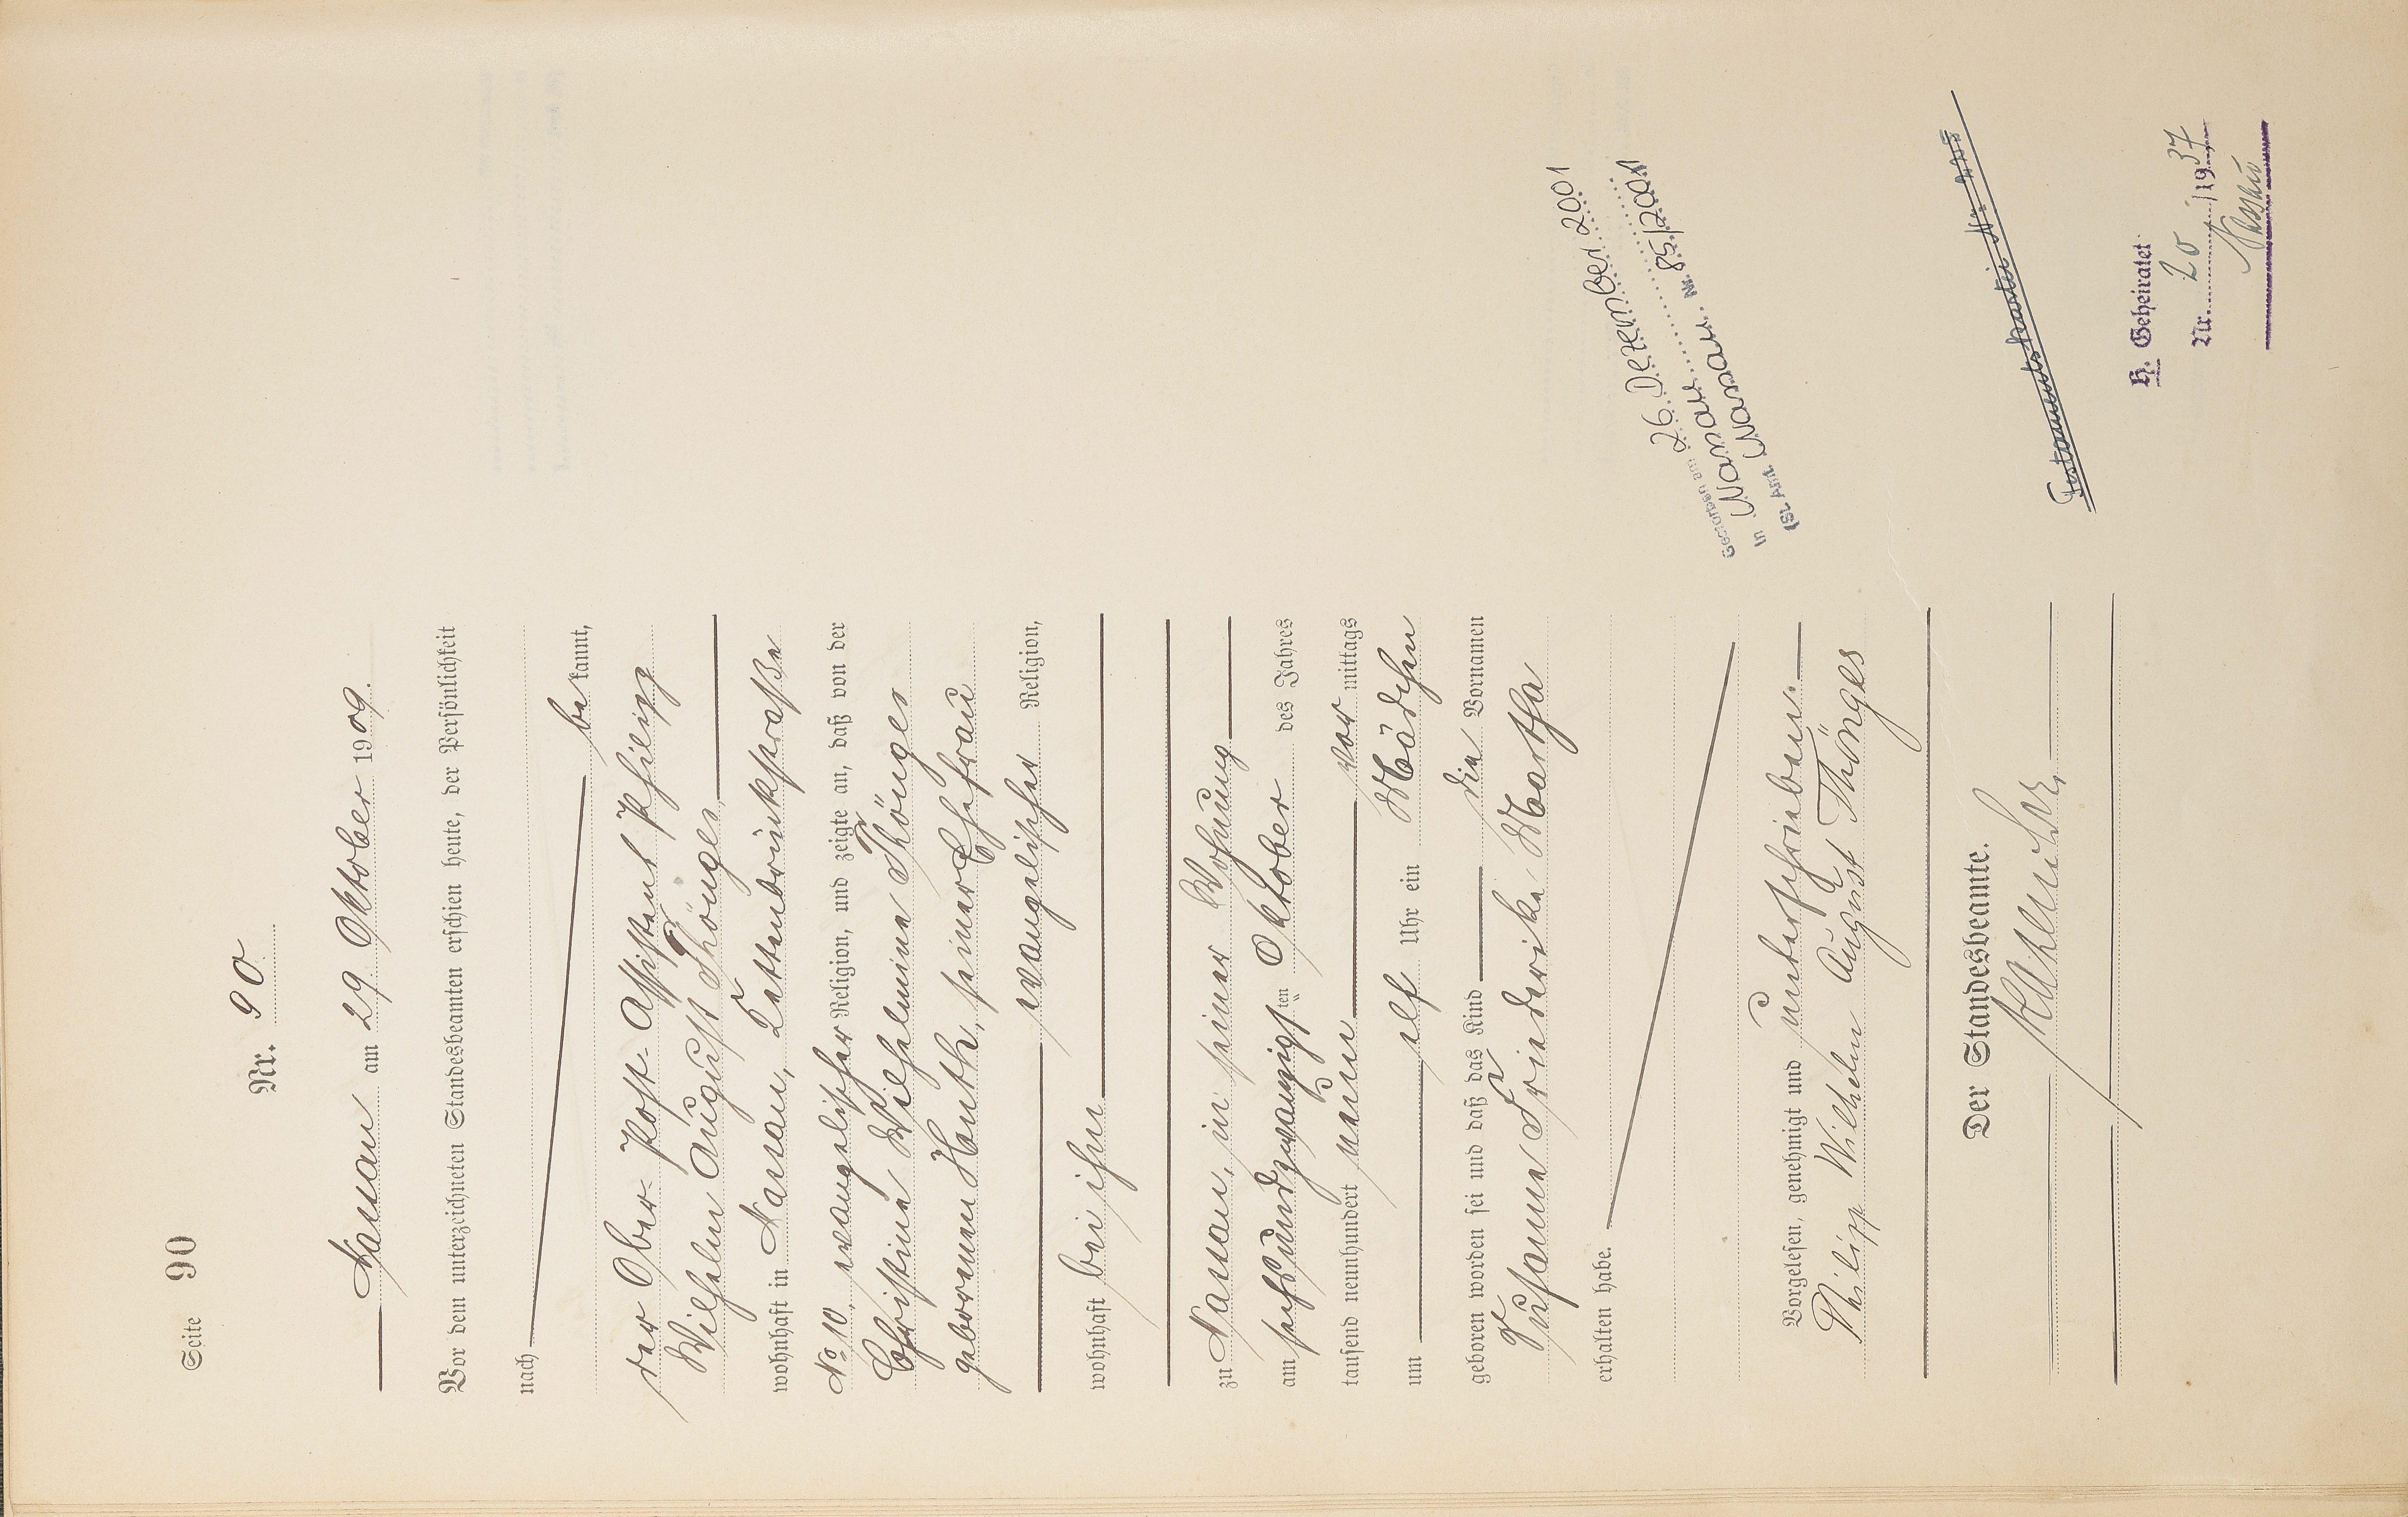 Seite 90
Nr. 90
Nassau am 29 Oktober 1909.
Vor dem unterzeichneten Standesbeamten erschien heute, der Persönlichkeit
nach
bekannt,
der Ober-Post-Assistent Philipp
Wilhelm August Thönges,
wohnhaft in Nassau, Kettenbrückstraße
No 10, evangelischer Religion, und zeigte an, daß von der
Christine Wilhelmine Thönges
geborenen Hauth, seiner Ehefrau
evangelischer Religion,
wohnhaft bei ihm
zu Nassau, in seiner Wohnung
am sechsundzwanzigsten Oktober des Jahres
tausend neunhundert neun vor mittags
um elf Uhr ein Mädchen
geboren worden sei und daß das Kind die Vornamen
Susanne Friederike Martha
erhalten habe.
Vorgelesen, genehmigt und unterschrieben.
Philipp Wilhelm August Thönges
Der Standesbeamte.
Gestorben am 26. Dezember 2001
in Nassau
(St. Amt Nassau Nr. 85/2001
Testamentskartei Nr.
H. Geheiratet
Nr. 20/1937
Nassau